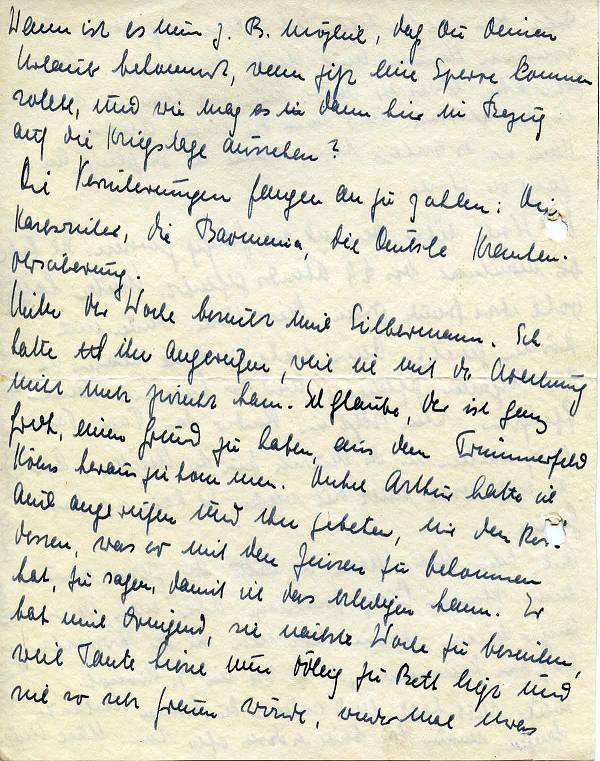 Wann ist es nun z. B. möglich, daß Du Deinen
Urlaub bekommst, wenn jetzt eine Sperre kommen
sollte, und wie mag es in dann hier in Bezug
auf die Kriegslage aussehen?
Die Versicherungen fangen an zu zahlen: Die
Karlsruher, die Barmenia, die Deutsche Kranken-
versicherung.
Unter der Woche besucht mich Silbermann. Ich
hatte ihn angerufen, weil ich mit der Abrechnung
nicht mehr zurecht kam. Ich glaube, der ist ganz
froh, einen Grund zu haben, aus dem Trümmerfeld
Kölns herauszukommen. Onkel Arthur hatte ich
auch angerufen und ihn gebeten, mir den Rest
dessen, was er mit den Zinsen zu bekommen
hat, zu sagen, damit ich das erledigen kann. Er
bat mich dringend, sie nächste Woche zu besuchen,
weil Tante nun völlig zu Bett liegt und
sich so sehr freuen würde, wieder mal etwas